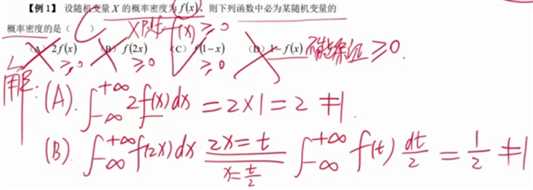 【例1】 设随机变量 X 的概率密度为 f(x)，则下列函数中必为某随机变量的
概率密度的是（ ） X密度f(x)≥0
(A) 2f(x) (B) f(2x) (C) f(1−x) (D) 1−f(x) 不能保证≥0.
≥0 ≥0 ≥0
解: (A). ∫_{-∞}^{+∞} 2f(x)dx = 2×1 = 2 ≠1
(B) ∫_{-∞}^{+∞} f(2x)dx 2x=t x=t/2 ∫_{-∞}^{+∞} f(t) dt/2 = 1/2 ≠1